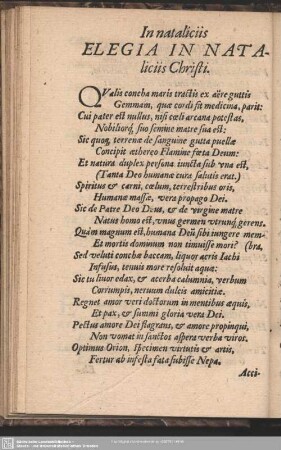 In nataliciis
ELEGIA IN NATA-
liciis Christi.
QValis concha maris tractis ex aëre guttis
Gemmam, quæ cordi sit medicina, parit:
Cui pater est nullus, nisi cœli arcana potestas,
Nobiliorq; suo semine matre sua est:
Sic quoq; terrenæ de sanguine gutta puellæ
Concipit æthereo Flamine fœta Deum:
Et natura duplex persona iuncta sub vna est,
(Tanta Deo humanæ cura salutis erat.)
Spiritus & carni, cœlum, terrestribus oris,
Humanæ massæ, vera propago Dei.
Sic de Patre Deo Deus, & de virgine matre
Natus homo est, vnus germen vtrunq; gerens.
Quàm magnum est, humana Deũ sibi iungere mem-
Et mortis dominum non timuisse mori? (bra,
Sed veluti conchæ baccam, liquor acris Iachi
Infusus, tenuis more resoluit aquæ:
Sic tu liuor edax, & acerba calumnia, verbum
Corrumpis, neruum dulcis amicitiæ.
Regnet amor veri doctorum in mentibus æquis,
Et pax, & summi gloria vera Dei.
Pectus amore Dei flagrans, & amore propinqui,
Non vomat in sanctos aspera verba viros.
Optimus Orion, specimen virtutis & artis,
Fertur ab infesta fata subisse Nepa.
Acci-